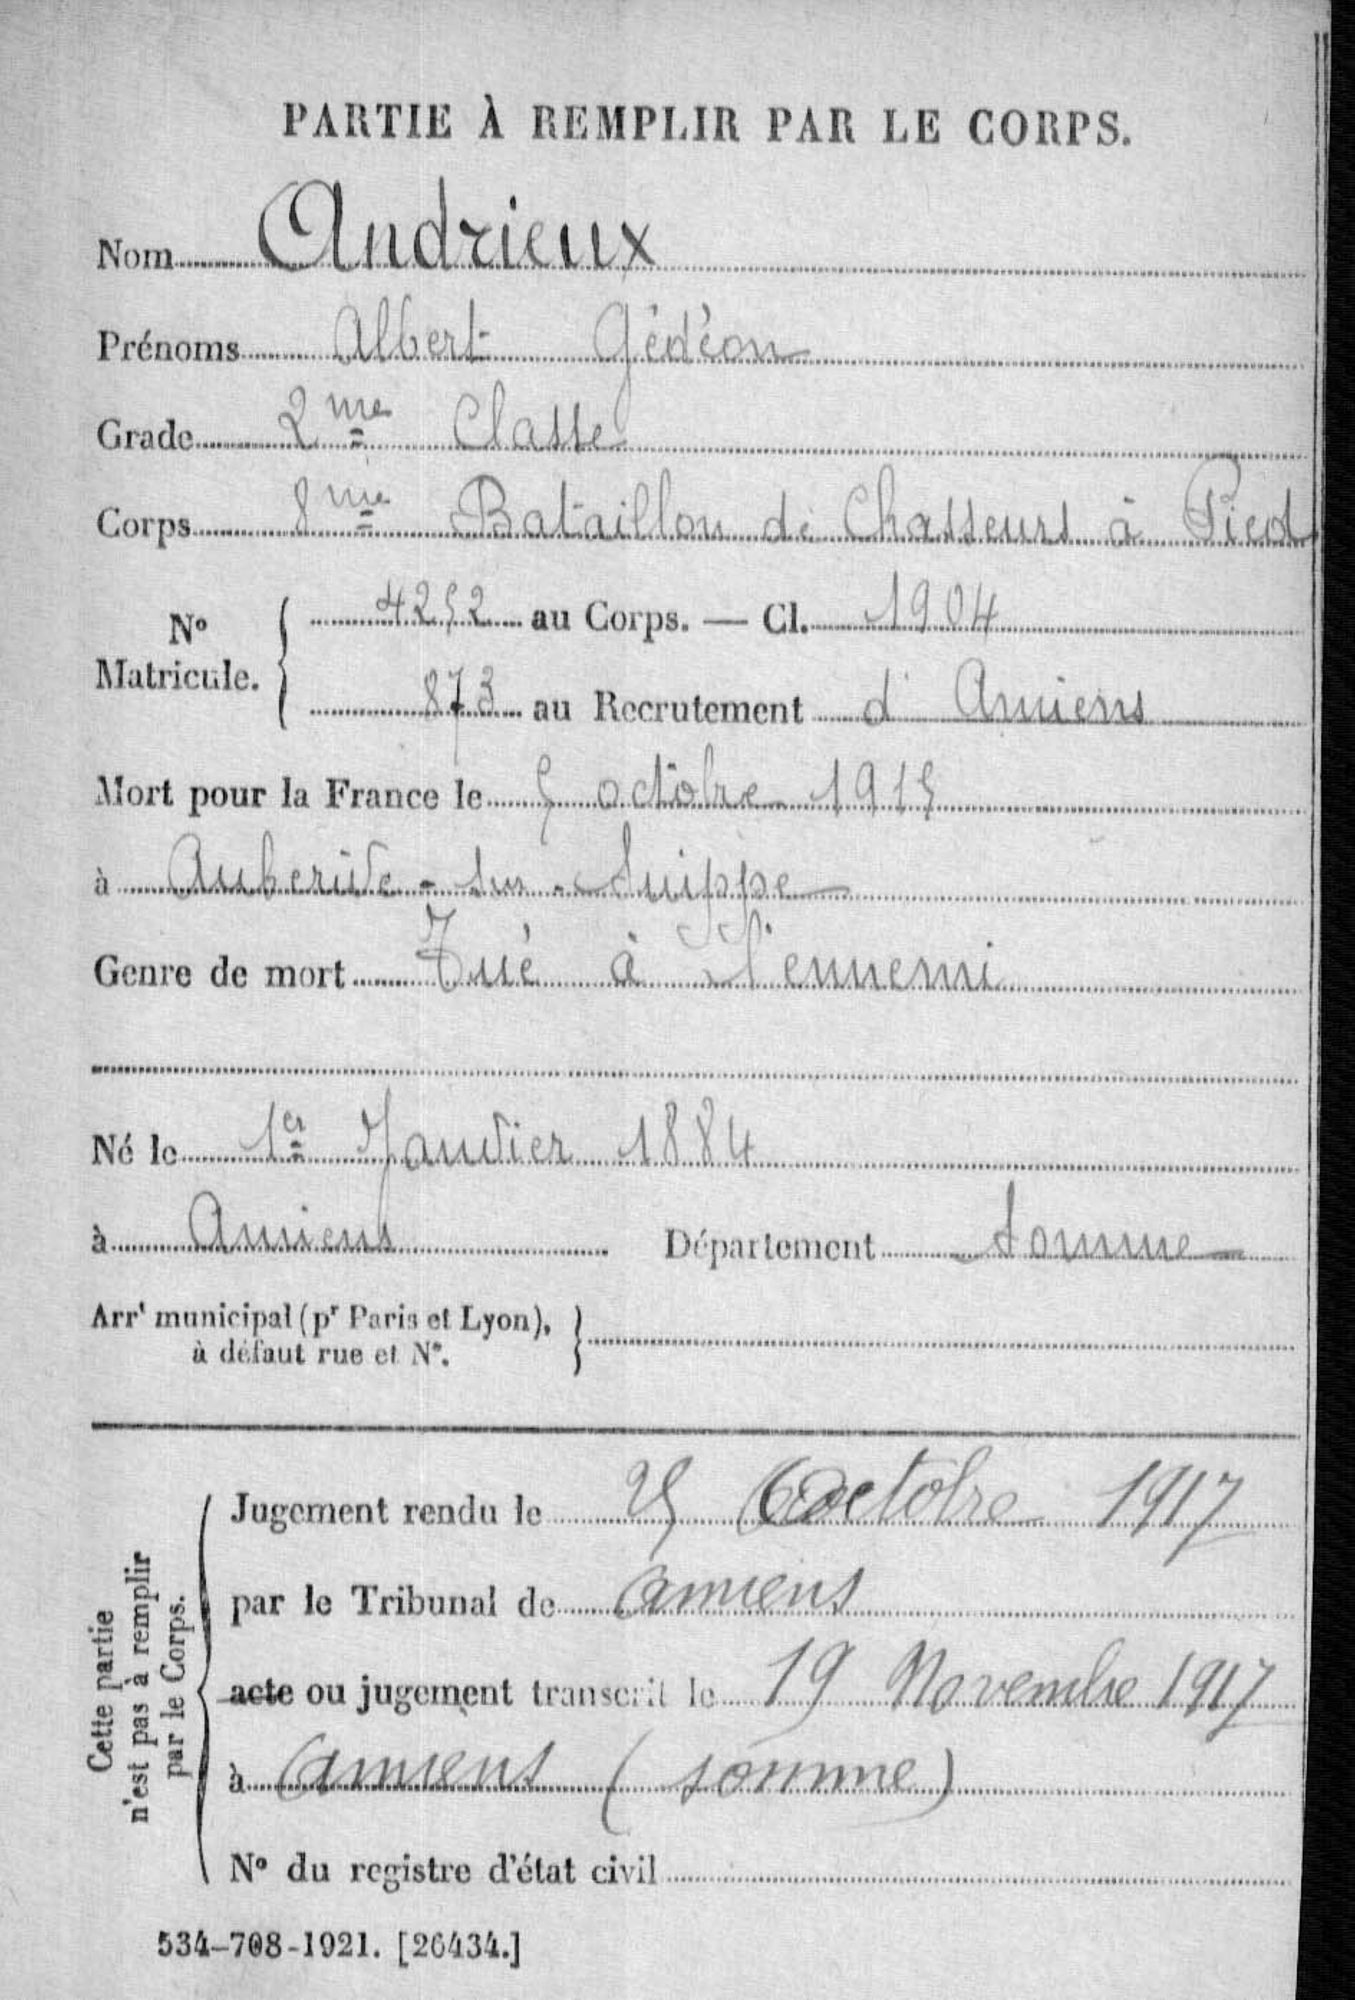 PARTIE À REMPLIR PAR LE CORPS.
Nom Andrieux
Prénoms Albert Gédéon
Grade 2me Classe
Corps 8me Bataillon de Chasseurs à Pied
No Matricule. { 4252 au Corps. — Cl. 1904
873 au Recrutement d'Amiens
Mort pour la France le 5 octobre 1915
à Auberive-sur-Suippe
Genre de mort Tué à l'ennemi
Né le 1er Janvier 1884
à Amiens Département Somme
Arrt municipal (pr Paris et Lyon), }
à défaut rue et No.
Cette partie
n'est pas à remplir
par le Corps.
Jugement rendu le 25 Octobre 1917
par le Tribunal de Amiens
acte ou jugement transcrit le 19 Novembre 1917
à Amiens (Somme)
No du registre d'état civil
534-708-1921. [26434.]